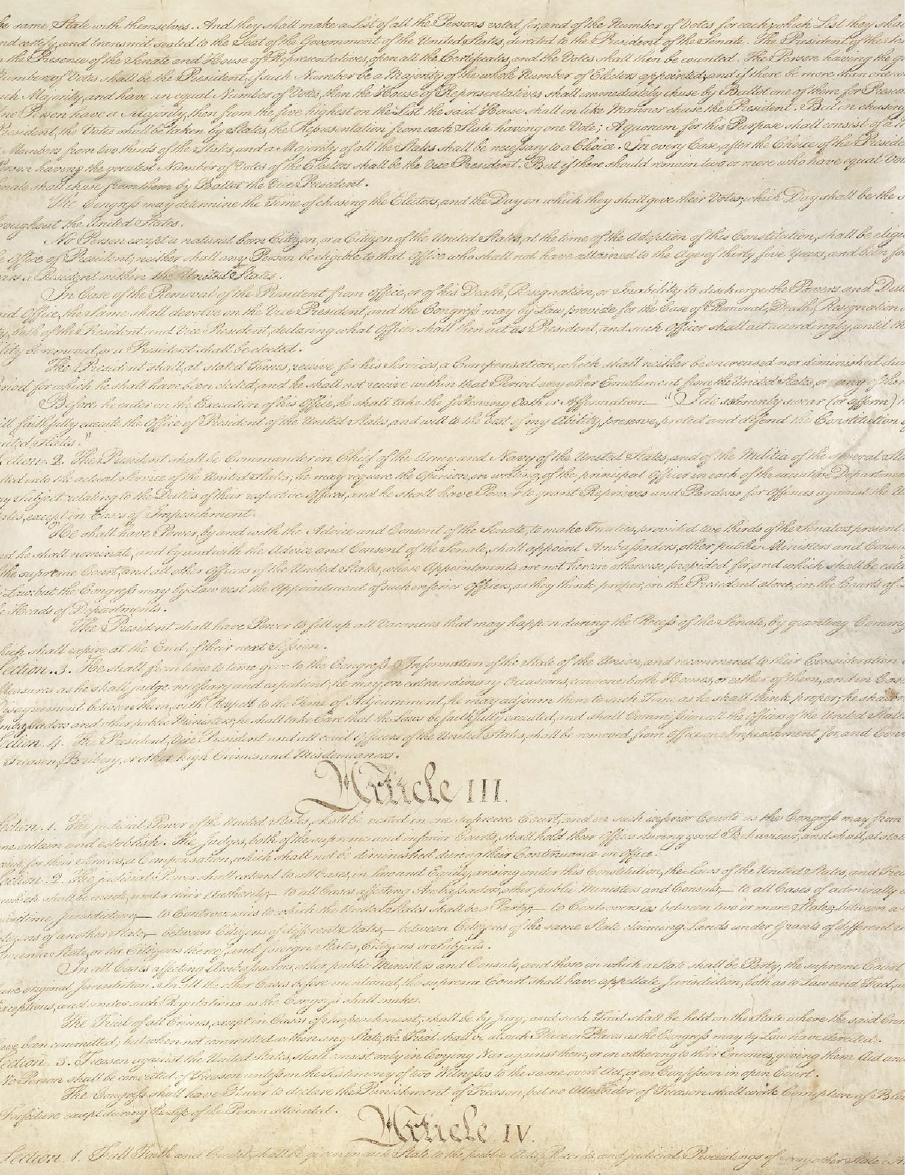 same State with themselves. And they shall make a List of all the Persons voted for, and of the Number of Votes for each; which List they shall
and certify, and transmit sealed to the Seat of the Government of the United States, directed to the President of the Senate. The President of the
the Presence of the Senate and House of Representatives, open all the Certificates, and the Votes shall then be counted. The Person having the
Number of Votes shall be the President, if such Number be a Majority of the whole Number of Electors appointed; and if there be more than one
such Majority, and have an equal Number of Votes, then the House of Representatives shall immediately chuse by Ballot one of them for
no Person have a Majority, then from the five highest on the List the said House shall in like Manner chuse the President. But in chusing
President, the Votes shall be taken by States, the Representation from each State having one Vote; A quorum for this Purpose shall consist of a
Members from two thirds of the States, and a Majority of all the States shall be necessary to a Choice. In every Case, after the Choice of the
Person having the greatest Number of Votes of the Electors shall be the Vice President. But if there should remain two or more who have equal
Senate shall chuse from them by Ballot the Vice President.
The Congress may determine the Time of chusing the Electors, and the Day on which they shall give their Votes; which Day shall be the
throughout the United States.
No Person except a natural born Citizen, or a Citizen of the United States, at the time of the Adoption of this Constitution, shall be
Office of President; neither shall any Person be eligible to that Office who shall not have attained to the Age of thirty five Years, and been
a Resident within the United States.
In Case of the Removal of the President from Office, or of his Death, Resignation, or Inability to discharge the Powers and
said Office, the Same shall devolve on the Vice President, and the Congress may by Law, provide for the Case of Removal, Death, Resignation
both of the President and Vice President, declaring what Officer shall then act as President, and such Officer shall act accordingly, until the
be removed, or a President shall be elected.
The President shall, at stated Times, receive for his Services, a Compensation, which shall neither be encreased nor diminished
for which he shall have been elected, and he shall not receive within that Period any other Emolument from the United States, or any of
Before he enter on the Execution of his Office, he shall take the following Oath or Affirmation:— "I do solemnly swear (or affirm)
will faithfully execute the Office of President of the United States, and will to the best of my Ability, preserve, protect and defend the Constitution
States."
Section. 2. The President shall be Commander in Chief of the Army and Navy of the United States, and of the Militia of the several
into the actual Service of the United States; he may require the Opinion, in writing, of the principal Officer in each of the executive
any Subject relating to the Duties of their respective Offices, and he shall have Power to grant Reprieves and Pardons for Offences against the
except in Cases of Impeachment.
He shall have Power, by and with the Advice and Consent of the Senate, to make Treaties, provided two thirds of the Senators present
and he shall nominate, and by and with the Advice and Consent of the Senate, shall appoint Ambassadors, other public Ministers and
the supreme Court, and all other Officers of the United States, whose Appointments are not herein otherwise provided for, and which shall be
Law: but the Congress may by Law vest the Appointment of such inferior Officers, as they think proper, in the President alone, in the Courts of
Heads of Departments.
The President shall have Power to fill up all Vacancies that may happen during the Recess of the Senate, by granting
shall expire at the End of their next Session.
Section. 3. He shall from time to time give to the Congress Information of the State of the Union, and recommend to their Consideration
Measures as he shall judge necessary and expedient; he may, on extraordinary Occasions, convene both Houses, or either of them, and in
Disagreement between them, with Respect to the Time of Adjournment, he may adjourn them to such Time as he shall think proper; he shall
Ambassadors and other public Ministers; he shall take Care that the Laws be faithfully executed, and shall Commission all the Officers of the United
Section. 4. The President, Vice President and all civil Officers of the United States, shall be removed from Office on Impeachment for, and
Treason, Bribery, or other high Crimes and Misdemeanors.
Article III.
Section. 1. The judicial Power of the United States, shall be vested in one supreme Court, and in such inferior Courts as the Congress may from
ordain and establish. The Judges, both of the supreme and inferior Courts, shall hold their Offices during good Behaviour, and shall, at
for their Services, a Compensation, which shall not be diminished during their Continuance in Office.
Section. 2. The judicial Power shall extend to all Cases, in Law and Equity, arising under this Constitution, the Laws of the United States, and
which shall be made, under their Authority;— to all Cases affecting Ambassadors, other public Ministers and Consuls;— to all Cases of admiralty
maritime Jurisdiction;— to Controversies to which the United States shall be a Party;— to Controversies between two or more States;— between a
Citizens of another State;— between Citizens of different States,— between Citizens of the same State claiming Lands under Grants of different
State, or the Citizens thereof, and foreign States, Citizens or Subjects.
In all Cases affecting Ambassadors, other public Ministers and Consuls, and those in which a State shall be Party, the supreme Court
have original Jurisdiction. In all the other Cases before mentioned, the supreme Court shall have appellate Jurisdiction, both as to Law and Fact,
Exceptions, and under such Regulations as the Congress shall make.
The Trial of all Crimes, except in Cases of Impeachment, shall be by Jury; and such Trial shall be held in the State where the said
have been committed; but when not committed within any State, the Trial shall be at such Place or Places as the Congress may by Law have directed.
Section. 3. Treason against the United States, shall consist only in levying War against them, or in adhering to their Enemies, giving them Aid and
No Person shall be convicted of Treason unless on the Testimony of two Witnesses to the same overt Act, or on Confession in open Court.
The Congress shall have Power to declare the Punishment of Treason, but no Attainder of Treason shall work Corruption of
Forfeiture except during the Life of the Person attainted.
Article IV.
Section. 1. Full Faith and Credit shall be given in each State to the public Acts, Records, and judicial Proceedings of every other State.